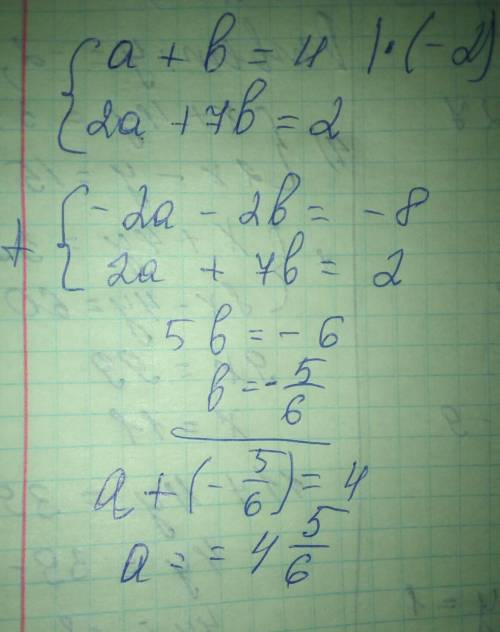 { a + b = 4 | · (-2)
2a + 7b = 2
+ { -2a - 2b = -8
2a + 7b = 2
5b = -6
b = -5/6
a + (-5/6) = 4
a = = 4 5/6